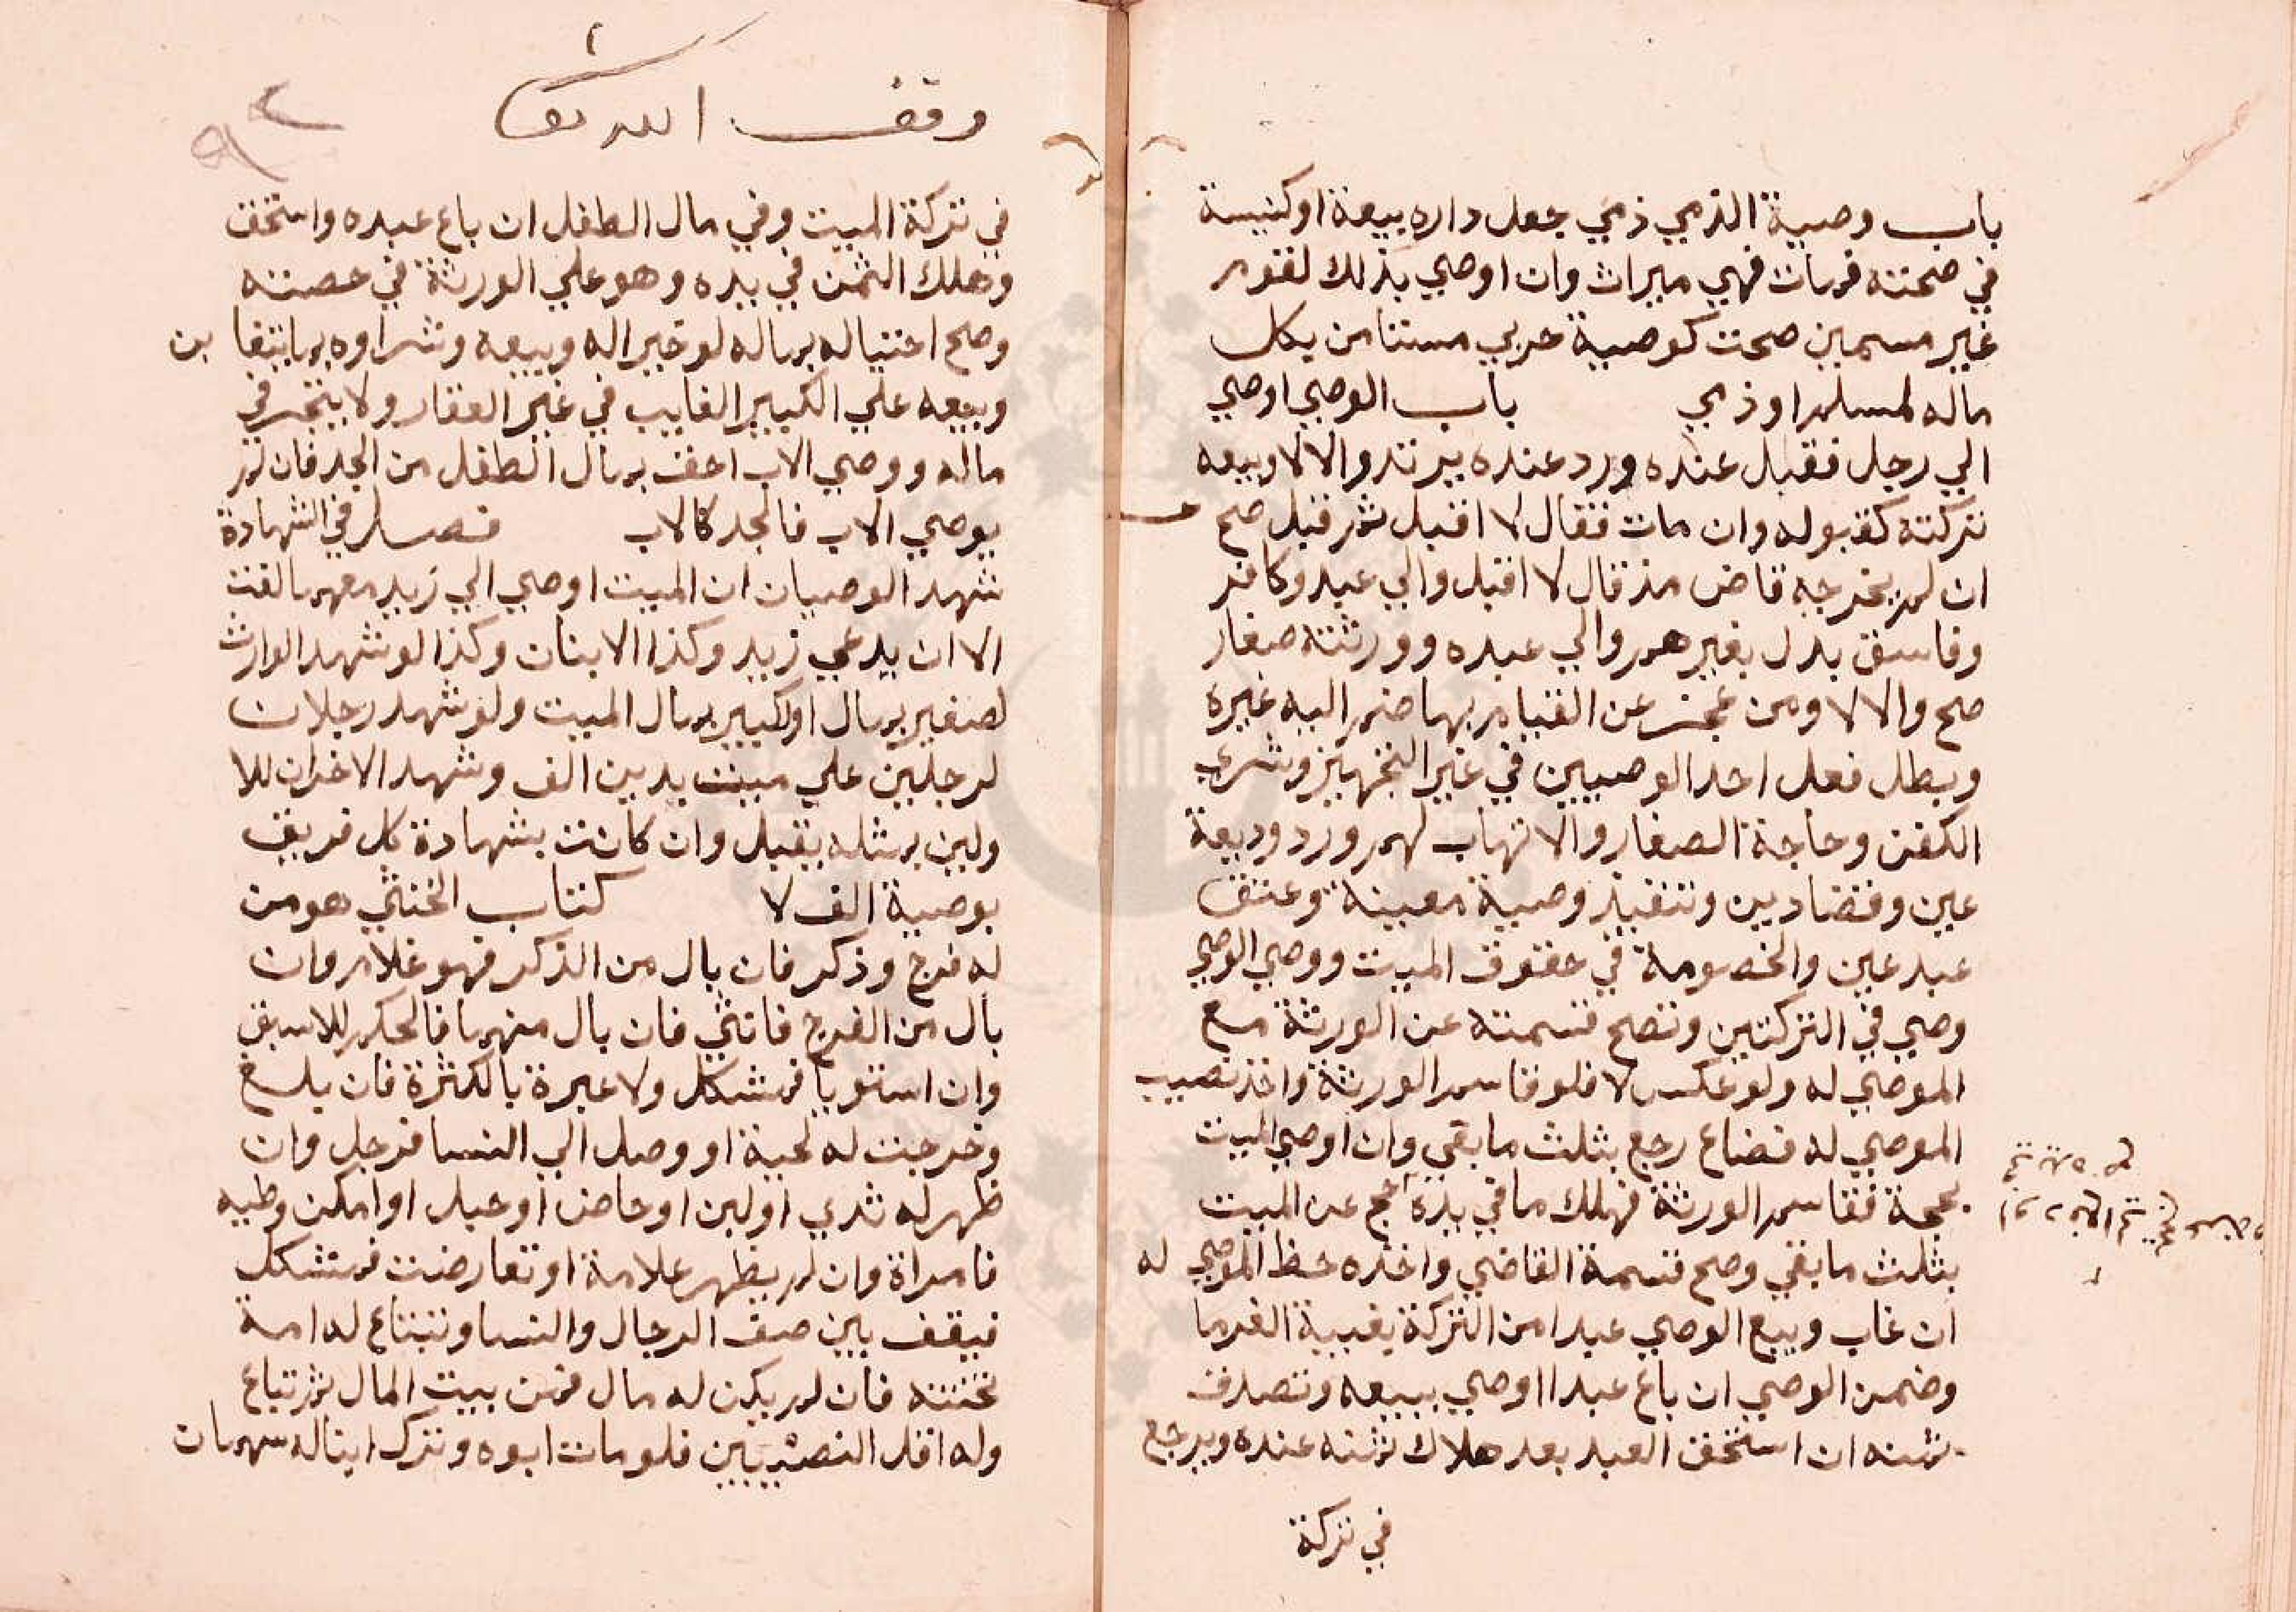 باب وصية الذمي ذمي جعل داره بيعة او كنيسة
في صحته فمات فهي ميراث وان اوصي بذلك لقوم
غير مسمين صحت كوصية حربي مستامن بكل
ماله لمسلم او ذمي باب الوصي اوصي
الي رجل فقبل عنده ورد عنده يرتد والا لا وبيعه
تركته كقبوله وان مات فقال لا اقبل ثم قبل صح
ان لم يخرجه قاض مذ قال لا اقبل والي عبد وكافر
وفاسق بدل بغيرهم والي عبده وورثته صغار
صح والا لا ومن عجز عن القيام بها ضم اليه غيره
وبطل فعل احد الوصيين في غير التجهيز وشري
الكفن وحاجة الصغار والاتهاب لهم ورد وديعة
عين وقضا دين وتنفيذ وصية معينة وعتق
عبد عين والخصومة في حقوق الميت ووصي الوصي
وصي في التركتين وتصح قسمته عن الورثة مع
الموصي له ولو عكس لا فلو قاسم الورثة واخذ نصيب
الموصي له فضاع رجع بثلث ما بقي وان اوصي الميت
بحجة فقاسم الورثة فهلك ما في يده حج عن الميت
بثلث ما بقي وصح قسمة القاضي واخذه حظ الموصي له
ان غاب وبيع الوصي عبدا من التركة بغيبة الغرما
وضمن الوصي ان باع عبدا اوصي ببيعه وتصدق
ثمنه ان استحق العبد بعد هلاك ثمنه عنده ويرجع
في تركة
وقف الله تعا
٩٢
في تركة الميت وفي مال الطفل ان باع عبده واستحق
وهلك الثمن في يده وهو علي الورثة في حصته
وصح احتياله بماله لو خيرا له وبيعه وشراوه بما يتغابن
وبيعه علي الكبير الغايب في غير العقار ولا يتجر في
ماله ووصي الاب احق بمال الطفل من الجد فان لم
يوصي الاب فالجد كالاب فصل في الشهادة
شهد الوصيان ان الميت اوصي الي زيد معهما لغت
الا ان يدعي زيد وكذا الابنان وكذا لو شهد الوارث
لصغير بمال او لكبير بمال الميت ولو شهد رجلان
لرجلين علي ميت بدين الف وشهد الاخران للا
ولين بمثله يقبل وان كانت بشهادة كل فريق
بوصية الف لا كتاب الخنثي هو من
له فرج وذكر فان بال من الذكر فهو غلام وان
بال من الفرج فانثي فان بال منهما فالحكم للاسبق
وان استويا فمشكل ولا عبرة بالكثرة فان بلغ
وخرجت له لحية او وصل الي النسا فرجل وان
ظهر له ثدي او لبن او حاض او حبل او امكن وطيه
فامراة وان لم يظهر علامة او تعارضت فمشكل
فيقف بين صف الرجال والنسا وتبتاع له امة
تختنه فان لم يكن له مال فمن بيت المال ثم تباع
وله اقل النصيبين فلو مات ابوه وترك ابنا له سهمان